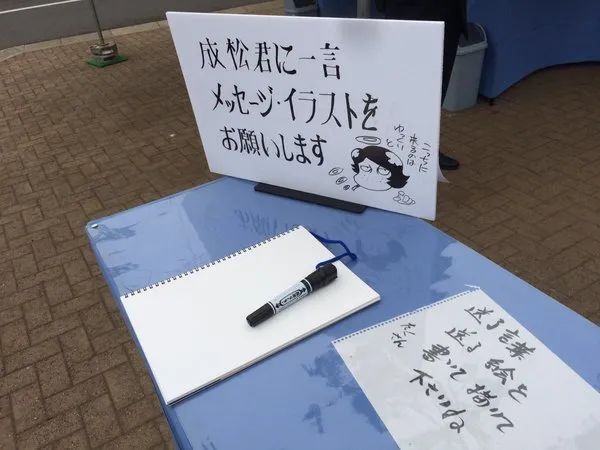 成松君に一言
メッセージ・イラストを
お願いします
こっちに
来るのは
ゆっくりと
送る言葉
送る絵を
書いて描いて
下さいね